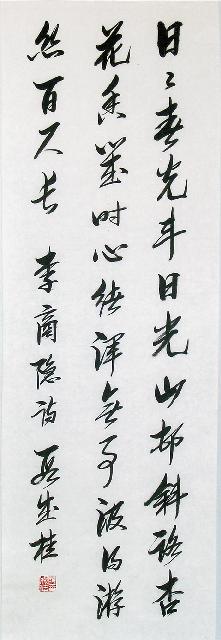 日〻春光斗日光山邨斜路杏
花香幾时心绪浑無事及得游
丝百尺长 李商隐诗 段成桂